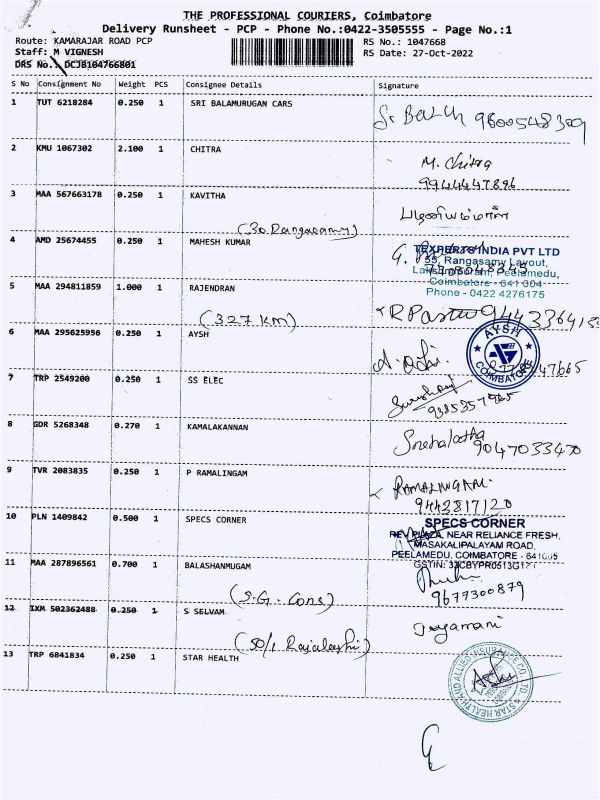 THE PROFESSIONAL COURIERS, Coimbatore
Delivery Runsheet - PCP - Phone No.:0422-3505555 - Page No.:1
Route: KAMARAJAR ROAD PCP
RS No.: 1047668
Staff: M VIGNESH
RS Date: 27-Oct-2022
DRS No.: DCJB104766801
S No Consignment No Weight PCS Consignee Details Signature
1 TUT 6218284 0.250 1 SRI BALAMURUGAN CARS
9600548309
2 KMU 1067302 2.100 1 CHITRA
M. Chitra
9944447896
3 MAA 567663178 0.250 1 KAVITHA
(30 Rangasamy)
4 AMD 25674455 0.250 1 MAHESH KUMAR
TEXPERTS INDIA PVT LTD
55, Rangasamy Layout,
Peelamedu,
Coimbatore - 641 004
Phone - 0422 4276175
5 MAA 294811859 1.000 1 RAJENDRAN
(327 KM)
6 MAA 295625956 0.250 1 AYSH
AYSH
COIMBATORE
7 TRP 2549200 0.250 1 SS ELEC
8 GDR 5268348 0.270 1 KAMALAKANNAN
Snehalatha
9047033470
9 TVR 2083835 0.250 1 P RAMALINGAM
RAMALINGAM.
9443817120
10 PLN 1409842 0.500 1 SPECS CORNER
SPECS CORNER
PLAZA, NEAR RELIANCE FRESH,
MASAKALIPALAYAM ROAD,
PEELAMEDU, COIMBATORE - 641005
11 MAA 287896561 0.700 1 BALASHANMUGAM
(S.G. Cons)
9677300879
12 IXM 502362488 0.250 1 S SELVAM
(50/1 Rajalaxhi)
Jeyamani
13 TRP 6841834 0.250 1 STAR HEALTH
STAR HEALTH AND ALLIED INSURANCE CO. LTD.